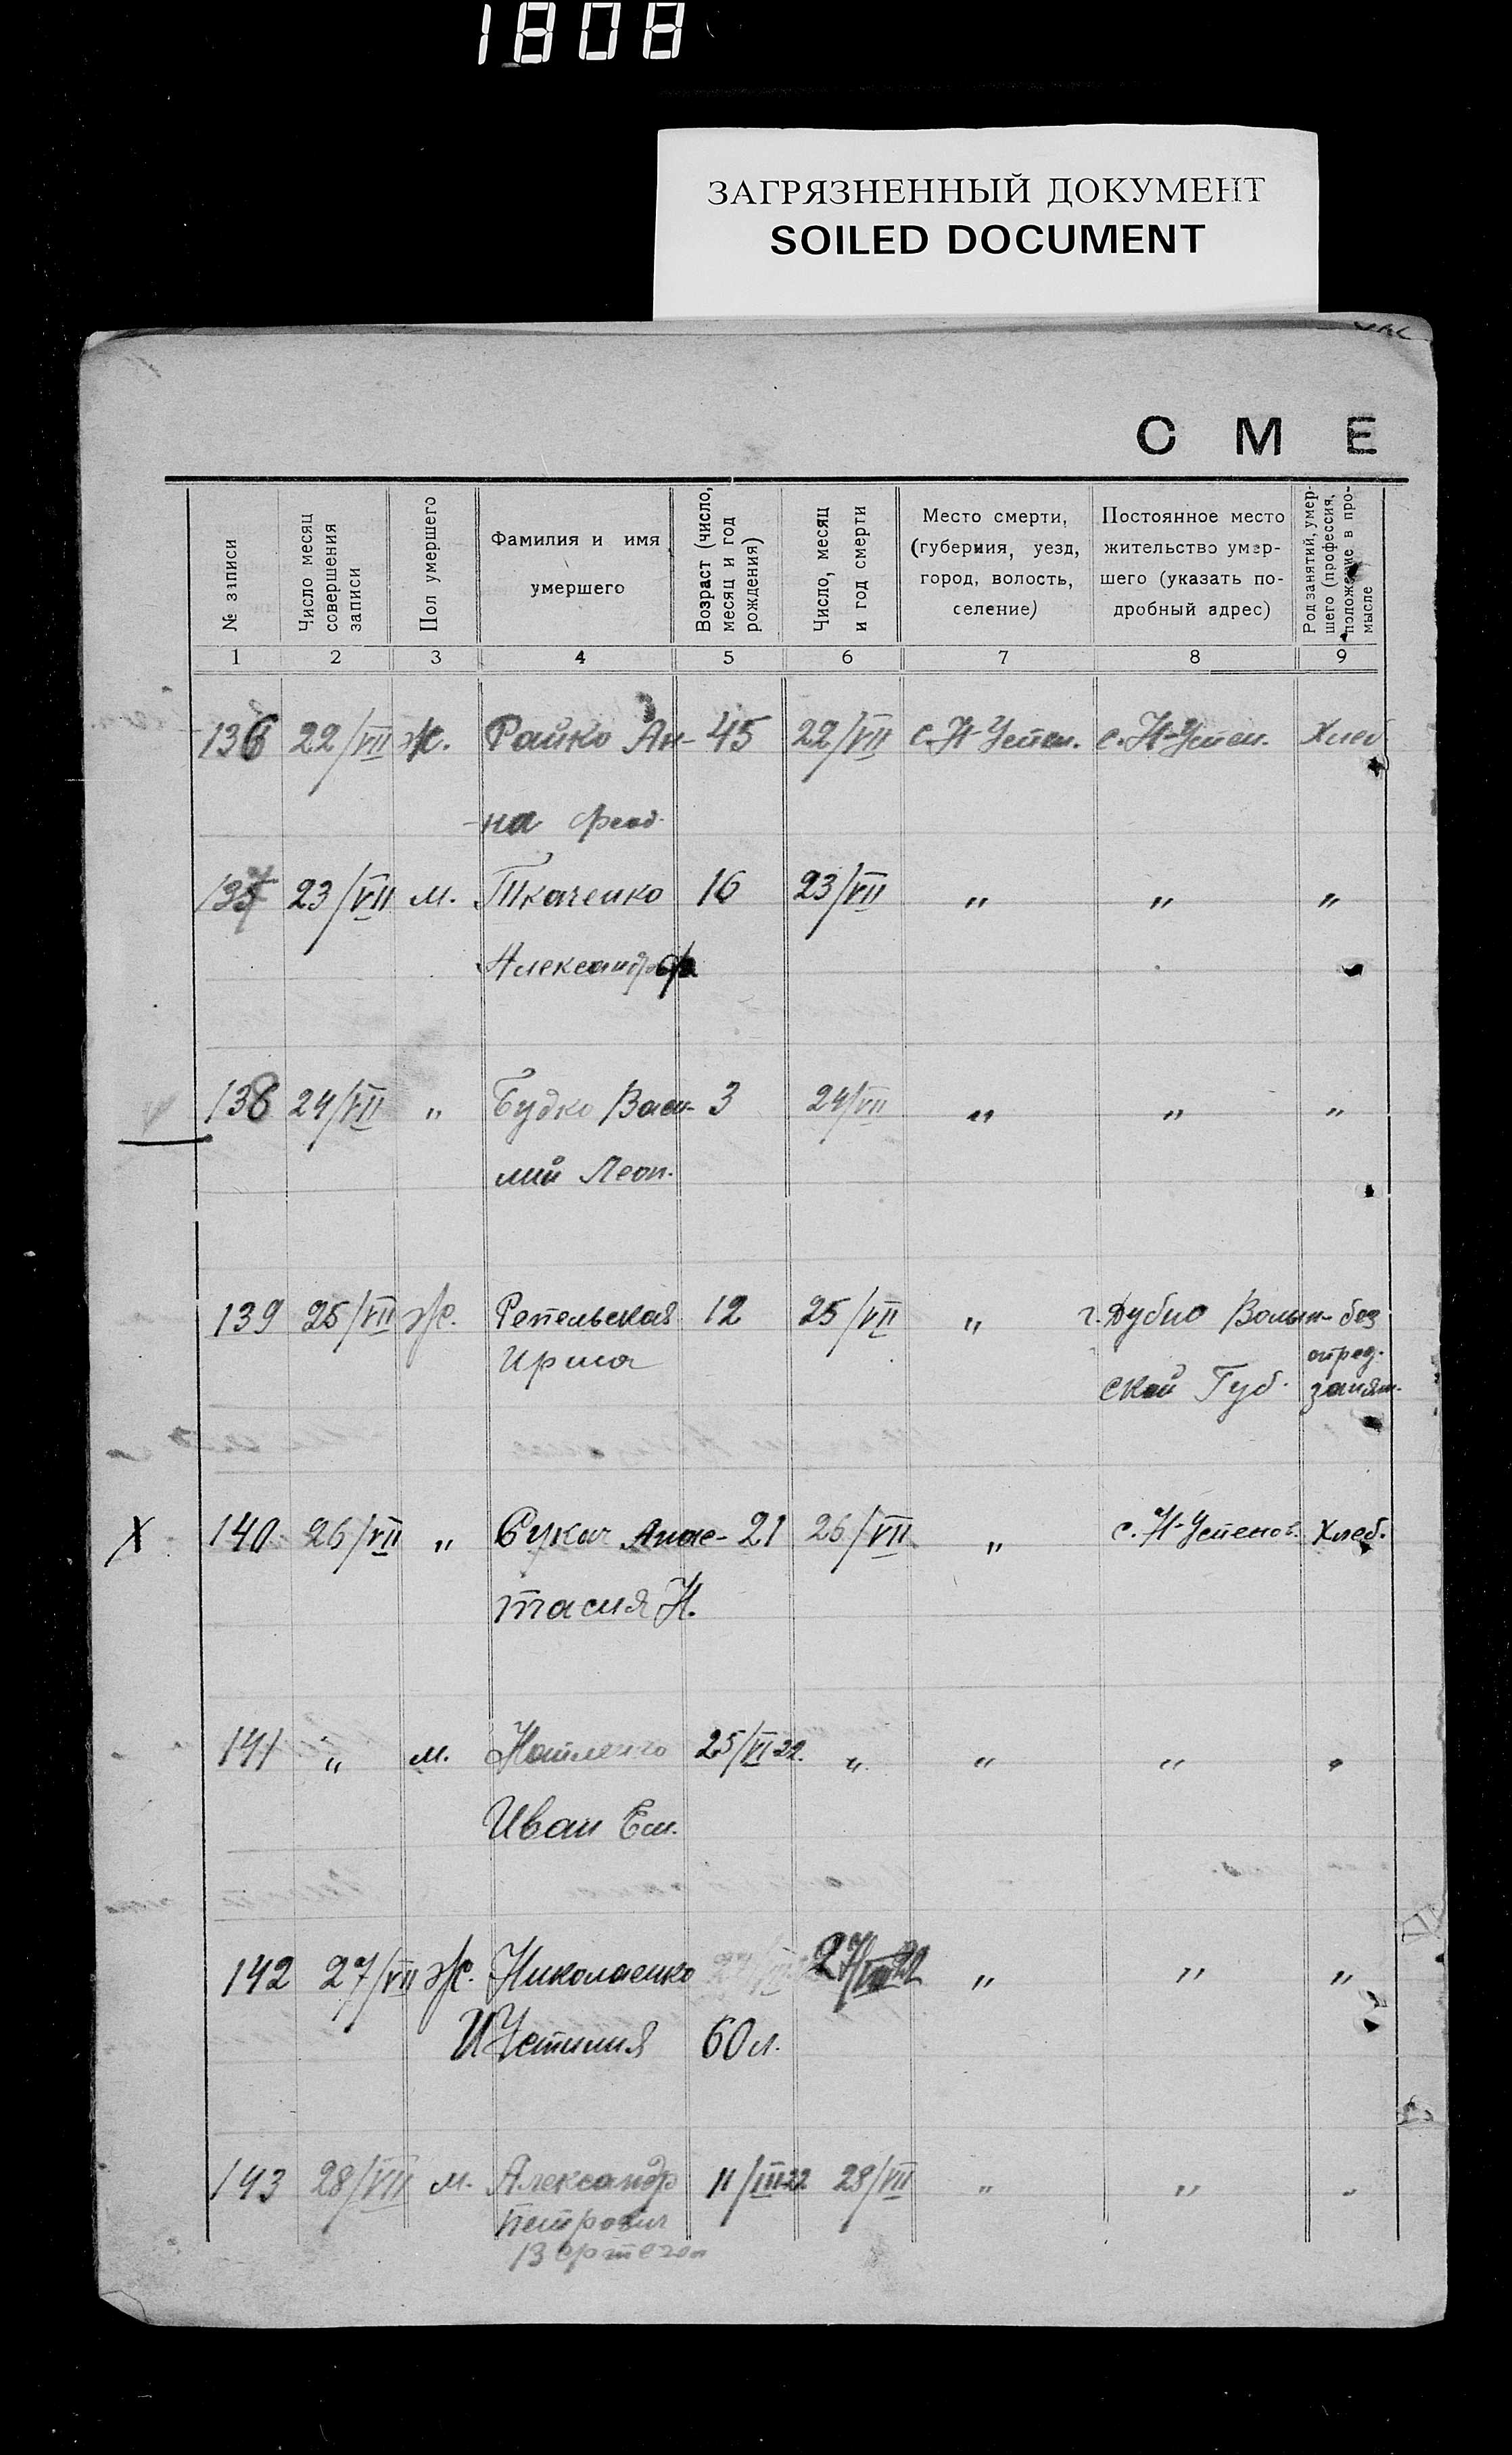 1808
ЗАГРЯЗНЕННЫЙ ДОКУМЕНТ
SOILED DOCUMENT
С М Е
№ записи
Число месяц совершения записи
Пол умершего
Фамилия и имя умершего
Возраст (число, месяц и год рождения)
Число, месяц и год смерти
Место смерти, (губерния, уезд, город, волость, селение)
Постоянное место жительство умершего (указать подробный адрес)
Род занятий, умершего (профессия, положение в промысле
1 2 3 4 5 6 7 8 9
136 22/VII ж. Райко Ан- 45 22/VII с. Н-Успен. с. Н-Успен. Хлеб.
-на Феод.
137 23/VII м. Ткаченко 16 23/VII " " "
Александр
138 24/VII " Будко Васи- 3 24/VII " " "
лий Леон.
139 25/VII ж. Репельская 12 25/VII " г. Дубно Волын- без
Ирина опред.
ской Губ. занят.
140 26/VII " Букач Анас- 21 26/VII " с. Н-Успенов. Хлеб.
тасия Н.
141 " м. 25/VI 22. " " " "
Иван Ем.
142 27/VII ж. Николаенко 27/VII 22 " " "
Устиния 60 л.
143 28/VII м. Александр 11/III 22 28/VII " " "
Петрович